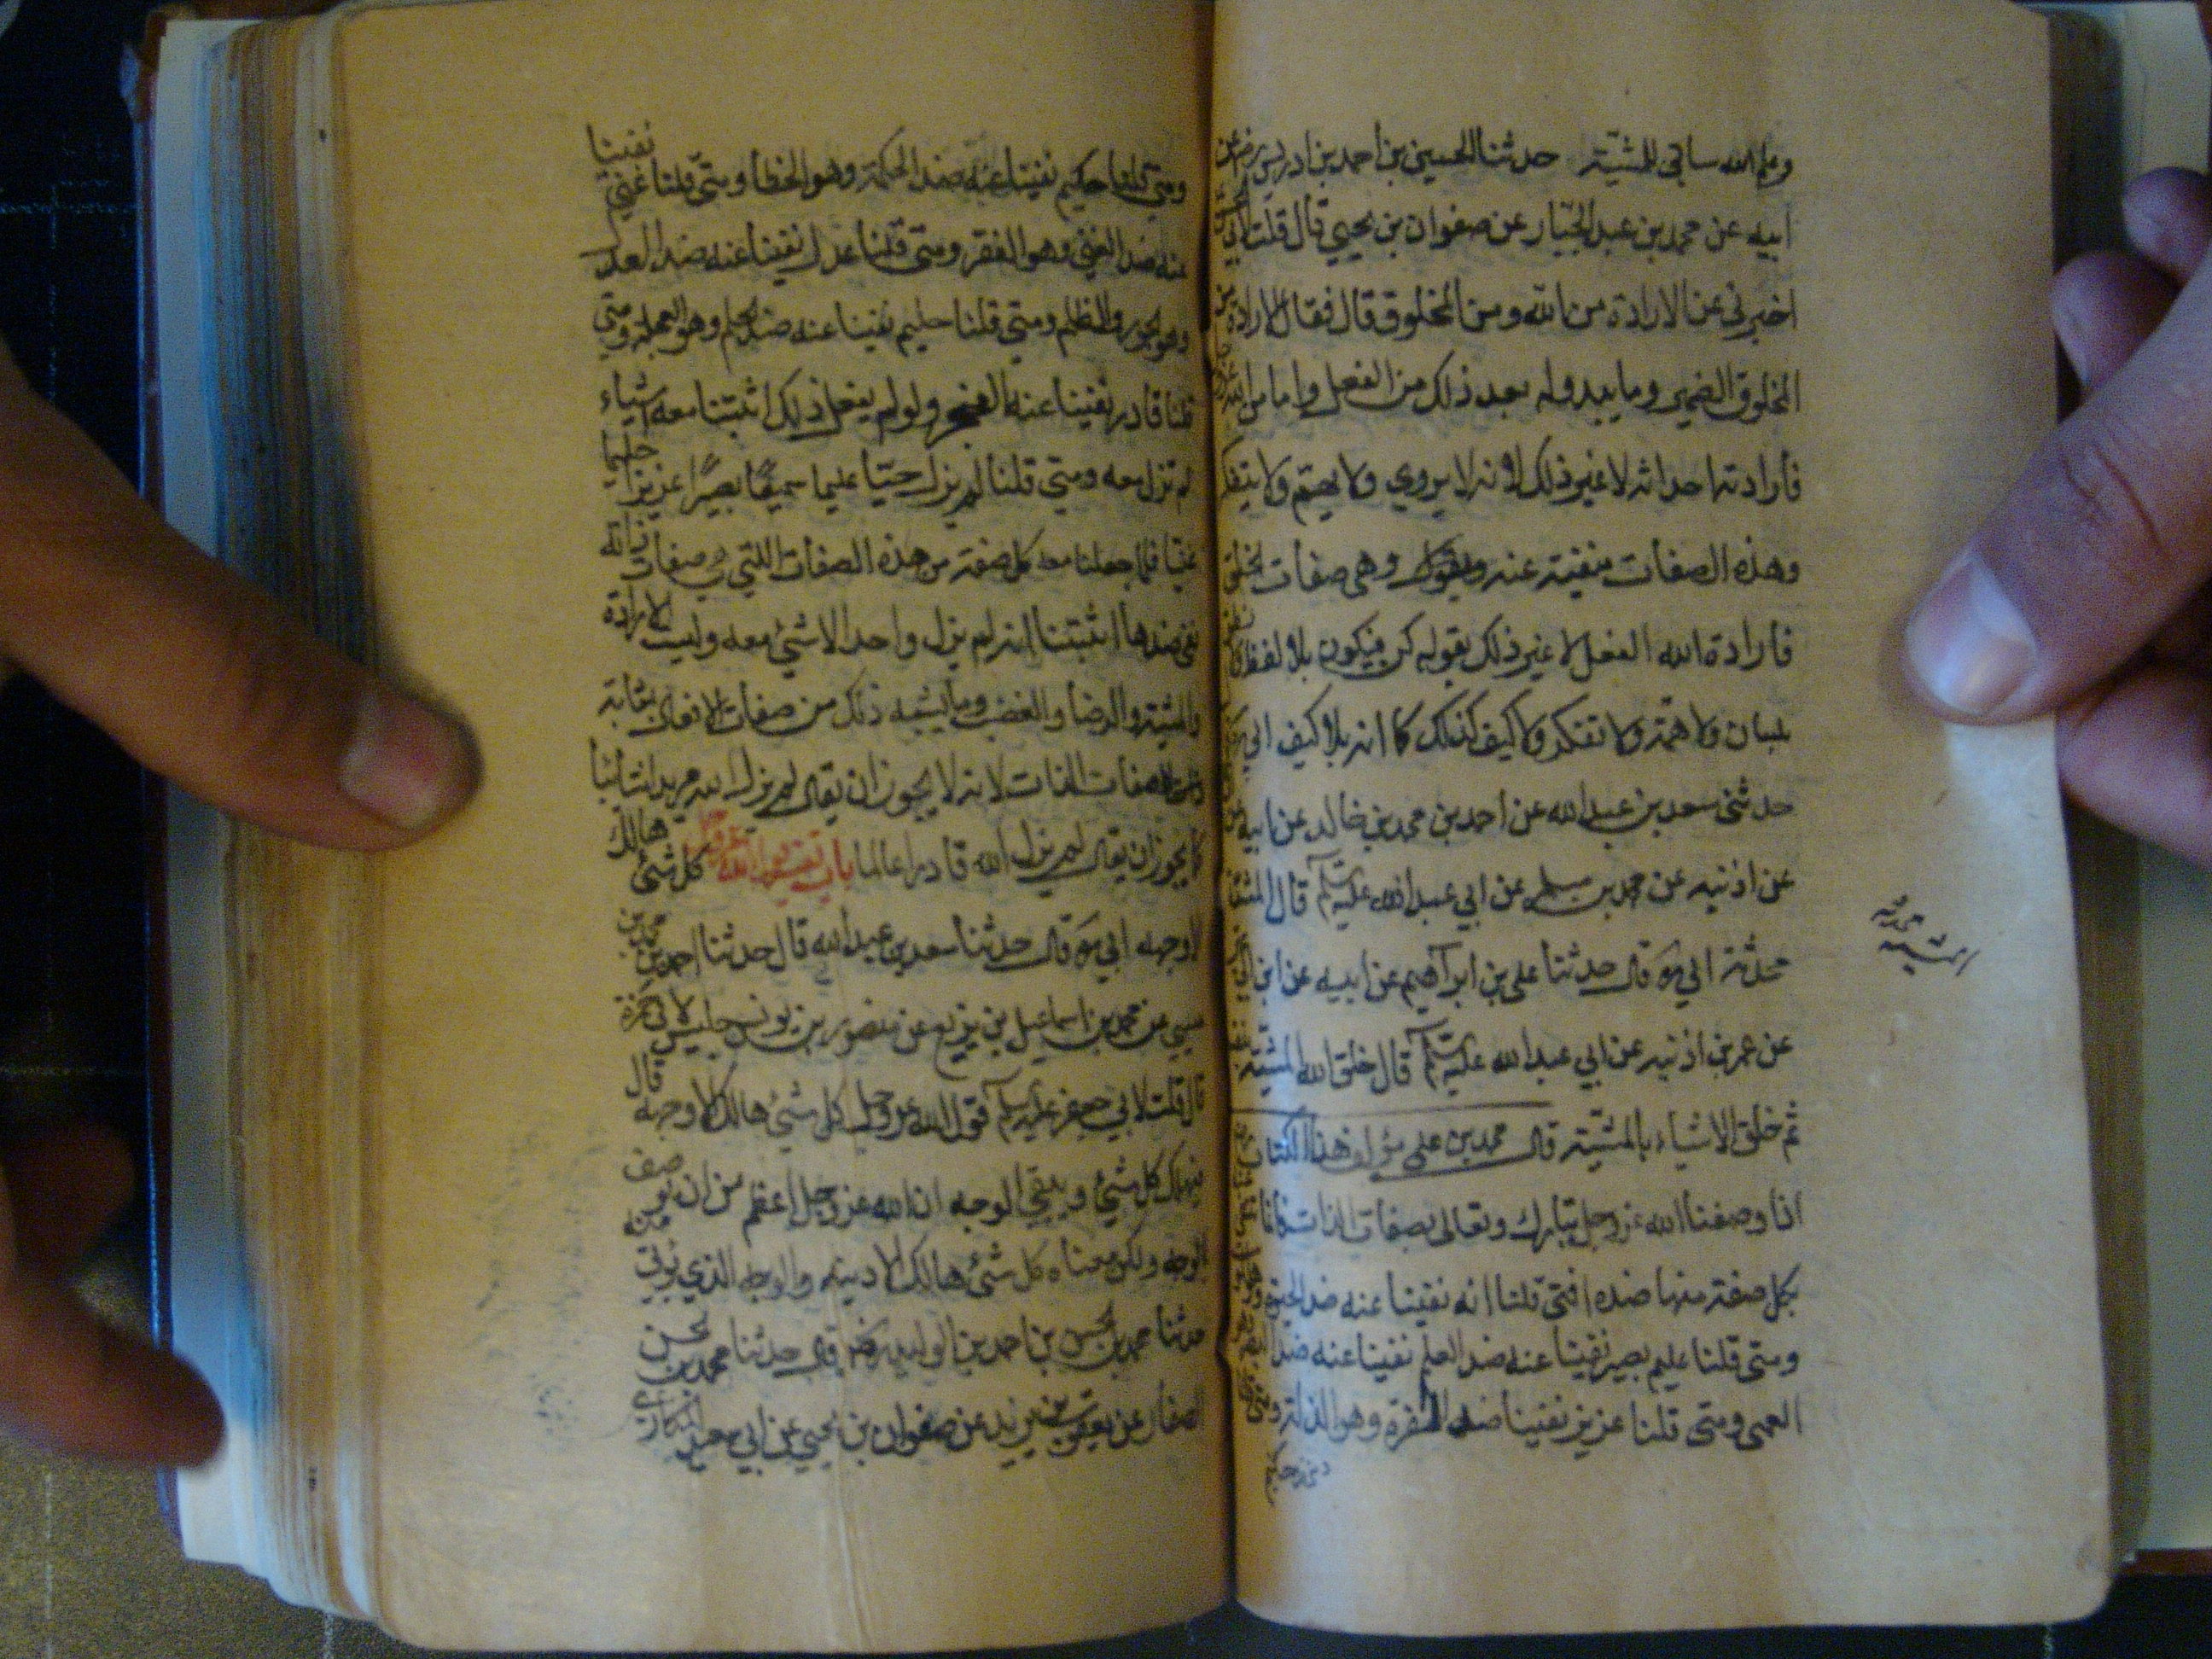 وعلم الله سابق للمشية حدثنا الحسين بن احمد بن ادريس رض عن
ابيه عن محمد بن عبد الجبار عن صفوان بن يحيي قال قلت لابي
اخبرني عن الارادة من الله ومن المخلوق قال فقال الارادة من
المخلوق الضمير وما يبدو له بعد ذلك من الفعل واما من الله
فأرادته احداثه لا غير ذلك لانه لا يروي ولا يهتم ولا يتفكر
وهذه الصفات منفية عنه وهي صفات الخلق
فأرادة الله الفعل لا غير ذلك يقول له كن فيكون بلا لفظ ولا نطق
بلسان ولا همة ولا تفكر ولا كيف كذلك كما انه بلا كيف ابي ره قال
حدثني سعد بن عبد الله عن احمد بن محمد بن خالد عن ابيه عن
عن اذنيه عن محمد بن مسلم عن ابي عبد الله عليه السلم قال المشية
محدثة ابي ره قال حدثنا علي بن ابراهيم عن ابيه عن ابن ابي عمير
عن عمر بن اذنيه عن ابي عبد الله عليه السلم قال خلق الله المشية
ثم خلق الاشياء بالمشية قال محمد بن علي مؤلف هذا الكتاب
اذا وصفنا الله عز وجل تبارك وتعالى بصفات الذات فانما
بكل صفة منها ضده افتى قلنا انه نفينا عنه ضد الحيوة وهو
ومتى قلنا عليم بصير نفينا عنه ضد العلم نفينا عنه ضد البصر
العمى ومتى قلنا عزيز نفينا ضد العزة وهو الذلة ومتى
المشية محدثة
ومتى قلنا حكيم نفينا عنه ضد الحكمة وهو الخطأ ومتى قلنا غني نفينا
عنه ضد الغني وهو الفقر ومتى قلنا عدل نفينا عنه ضد العدل
وهو الجور والظلم ومتى قلنا حليم نفينا عنه ضد الحلم وهو العجلة ومتى
قلنا قادر نفينا عنه العجز ولو لم يفعل ذلك اثبتنا معه اشياء
لم تزل معه ومتى قلنا لم يزل حيّا عليما سميعًا بصيرًا عزيزا حليما
غنيا فلما جعلنا معه كل صفة من هذه الصفات اللتي هي صفات ذاته
نفي ضدها اثبتنا انه لم يزل واحد الا شيئ معه وليست الارادة
والمشية والرضا والغضب وما يشبه ذلك من صفات الافعال بمثابة
صفات الذات لانه لا يجوز ان يقال لم يزل الله مريدا شائيا
كما يجوز ان يقال لم يزل الله قادرا عالما باب تفسير قول الله عز وجل كل شئ هالك
الا وجهه ابي ره قال حدثنا سعد بن عبد الله قال حدثنا احمد بن محمد بن
عيسي عن محمد بن اسماعيل بن بزيع عن منصور بن يونس عن جليس لابي حمزة
قال قلت لابي جعفر عليه السلم قول الله عز وجل كل شيئ هالك الا وجهه قال
فيهلك كل شيئ ويبقي الوجه ان الله عز وجل اعظم من ان يوصف
بالوجه ولكن معناه كل شئ هالك الا دينه والوجه الذي يؤتي منه
حدثنا محمد بن الحسن بن احمد بن الوليد رض قال حدثنا محمد بن الحسن
الصفار عن يعقوب بن يزيد عن صفوان بن يحيي عن ابي سعيد المكاري